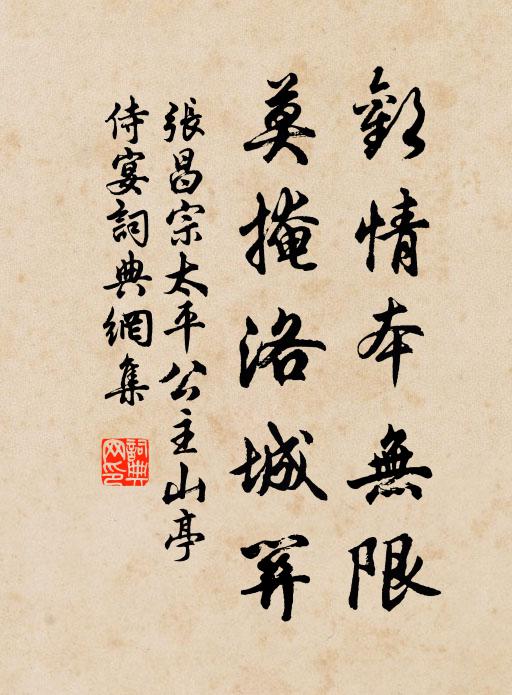 歡情本無限
莫掩洛城關
張昌宗太平公主山亭
侍宴詞典網集
詞典
网印